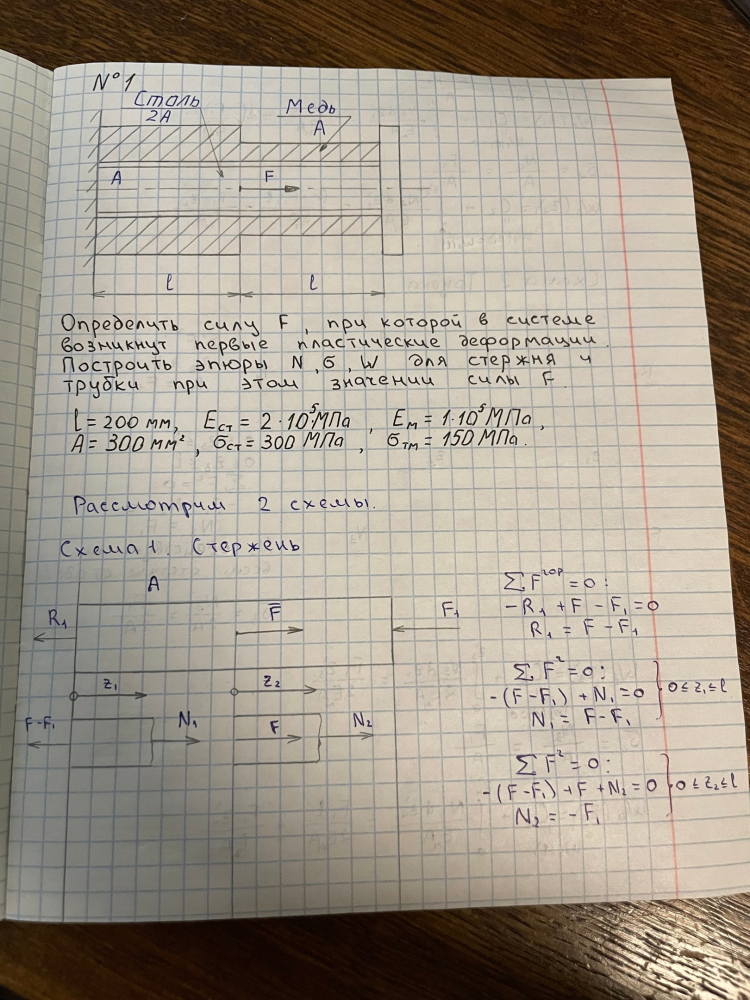 N°1
Сталь
2А
Медь
А
А
F
l
l
Определить силу F, при которой в системе
возникнут первые пластические деформации.
Построить эпюры N, б, W для стержня и
трубки при этом значении силы F.
l = 200 мм, Eст = 2·10⁵МПа, Eм = 1·10⁵МПа,
A = 300 мм², бст = 300 МПа, бтм = 150 МПа.
Рассмотрим 2 схемы.
Схема 1. Стержень
A
R₁
F̅
F₁
z₁
z₂
F-F₁
N₁
F
N₂
∑Fгор = 0:
-R₁ + F - F₁ = 0
R₁ = F - F₁
∑Fᶻ = 0:
-(F - F₁) + N₁ = 0
N₁ = F - F₁
0 ≤ z₁ ≤ l
∑Fᶻ = 0:
-(F - F₁) + F + N₂ = 0
N₂ = - F₁
0 ≤ z₂ ≤ l